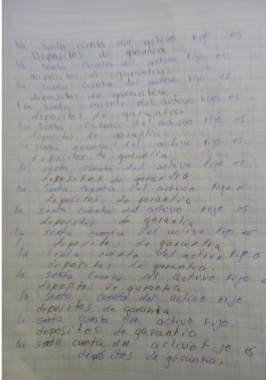 la sexta cuenta del activo fijo es
depositos de garantia
la sexta cuenta del activo fijo es
depositos de garantia
la sexta cuenta del activo fijo es
depositos de garantia
la sexta cuenta del activo fijo es
depositos de garantia
la sexta cuenta del activo fijo es
depositos de garantia
la sexta cuenta del activo fijo es
depositos de garantia.
la sexta cuenta del activo fijo es
depositos de garantia
la sexta cuenta del activo fijo es
depositos de garantia
la sexta cuenta del activo fijo es
depositos de garantia
la sexta cuenta del activo fijo es
depositos de garantia
la sexta cuenta del activo fijo es
depositos de garantia.
la sexta cuenta del activo fijo
depositos de garantia
la sexta cuenta del activo fijo
depositos de garantia
la sexta cuenta del activo fijo
depositos de garantia
la sexta cuenta del activo fijo es
depositos de garantia.